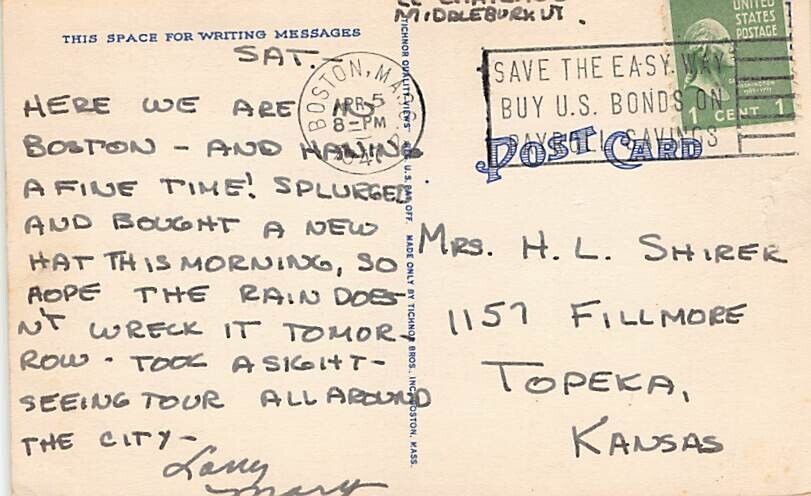 THIS SPACE FOR WRITING MESSAGES
SAT.—
HERE WE ARE IN
BOSTON — AND HAVING
A FINE TIME! SPLURGED
AND BOUGHT A NEW
HAT THIS MORNING, SO
HOPE THE RAIN DOES-
N'T WRECK IT TOMOR-
ROW - TOOK A SIGHT-
SEEING TOUR ALL AROUND
THE CITY —
Larry
Mary
TICHNOR QUALITY VIEWS REG. U.S. PAT. OFF. MADE ONLY BY TICHNOR BROS., INC., BOSTON, MASS.
MIDDLEBURY VT.
BOSTON, MASS.
APR 5
8-PM
SAVE THE EASY WAY
BUY U.S. BONDS ON
PAYROLL SAVINGS
UNITED
STATES
POSTAGE
1 CENT 1
POST CARD
MRS. H. L. SHIRER
1157 FILLMORE
TOPEKA,
KANSAS